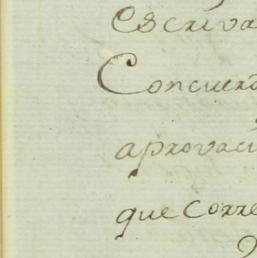 Escriva
Concuerd
aprovaci
que corre